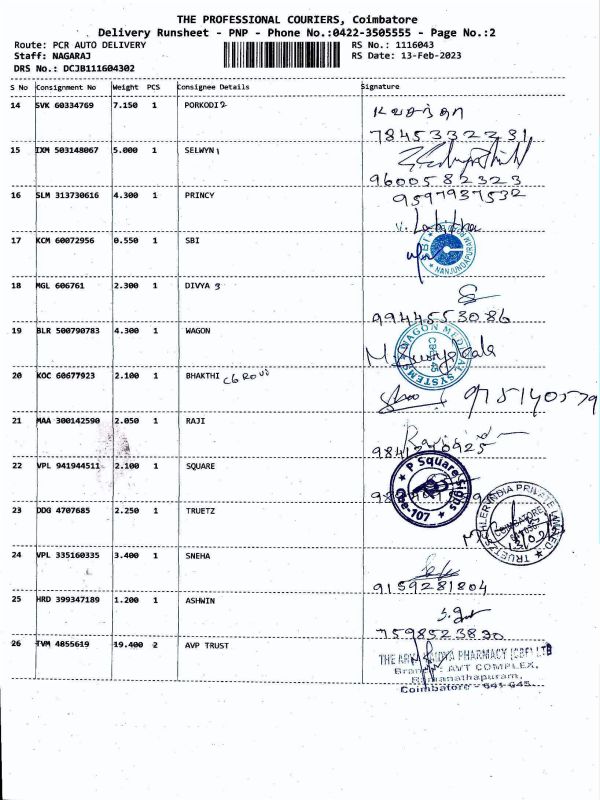 THE PROFESSIONAL COURIERS, Coimbatore
Delivery Runsheet - PNP - Phone No.:0422-3505555 - Page No.:2
Route: PCR AUTO DELIVERY RS No.: 1116043
Staff: NAGARAJ RS Date: 13-Feb-2023
DRS No.: DCJB111604302
S No Consignment No Weight PCS Consignee Details Signature
14 SVK 60334769 7.150 1 PORKODI 2
வசந்தா
7845332231
15 IXM 503148067 5.000 1 SELWYN 1
9600582323
16 SLM 313730616 4.300 1 PRINCY 9597937532
V. Lalitha
17 KCM 60072956 0.550 1 SBI
SBI NANJUNDAPURAM ROAD
18 MGL 606761 2.300 1 DIVYA 3
9944553086
19 BLR 500790783 4.300 1 WAGON
WAGON MEDICAL SYSTEMS
CBE-45
20 KOC 60677923 2.100 1 BHAKTHI
9715140579
21 MAA 300142590 2.050 1 RAJI
22 VPL 941944511 2.100 1 SQUARE
P Square Signs
Cbe-107
23 DDG 4707685 2.250 1 TRUETZ
TRUETZSCHLER INDIA PRIVATE LIMITED
COIMBATORE
24 VPL 335160335 3.400 1 SNEHA
9159281804
25 HRD 399347189 1.200 1 ASHWIN
7598523830
26 TVM 4855619 19.400 2 AVP TRUST
THE ARYA VAIDYA PHARMACY (CBE) LTD
Branch: AVT COMPLEX,
Ramanathapuram,
Coimbatore - 641 045.